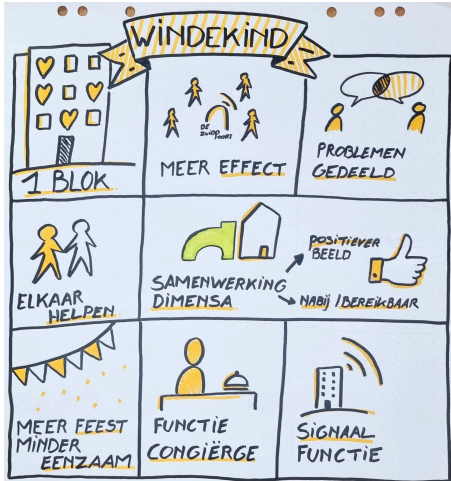 WINDEKIND
1 BLOK
DE
ZUIDPOORT
MEER EFFECT
PROBLEMEN
GEDEELD
ELKAAR
HELPEN
SAMENWERKING
DIMENSA
POSITIEVER
BEELD
NABIJ / BEREIKBAAR
MEER FEEST
MINDER
EENZAAM
FUNCTIE
CONGIËRGE
SIGNAAL
FUNCTIE